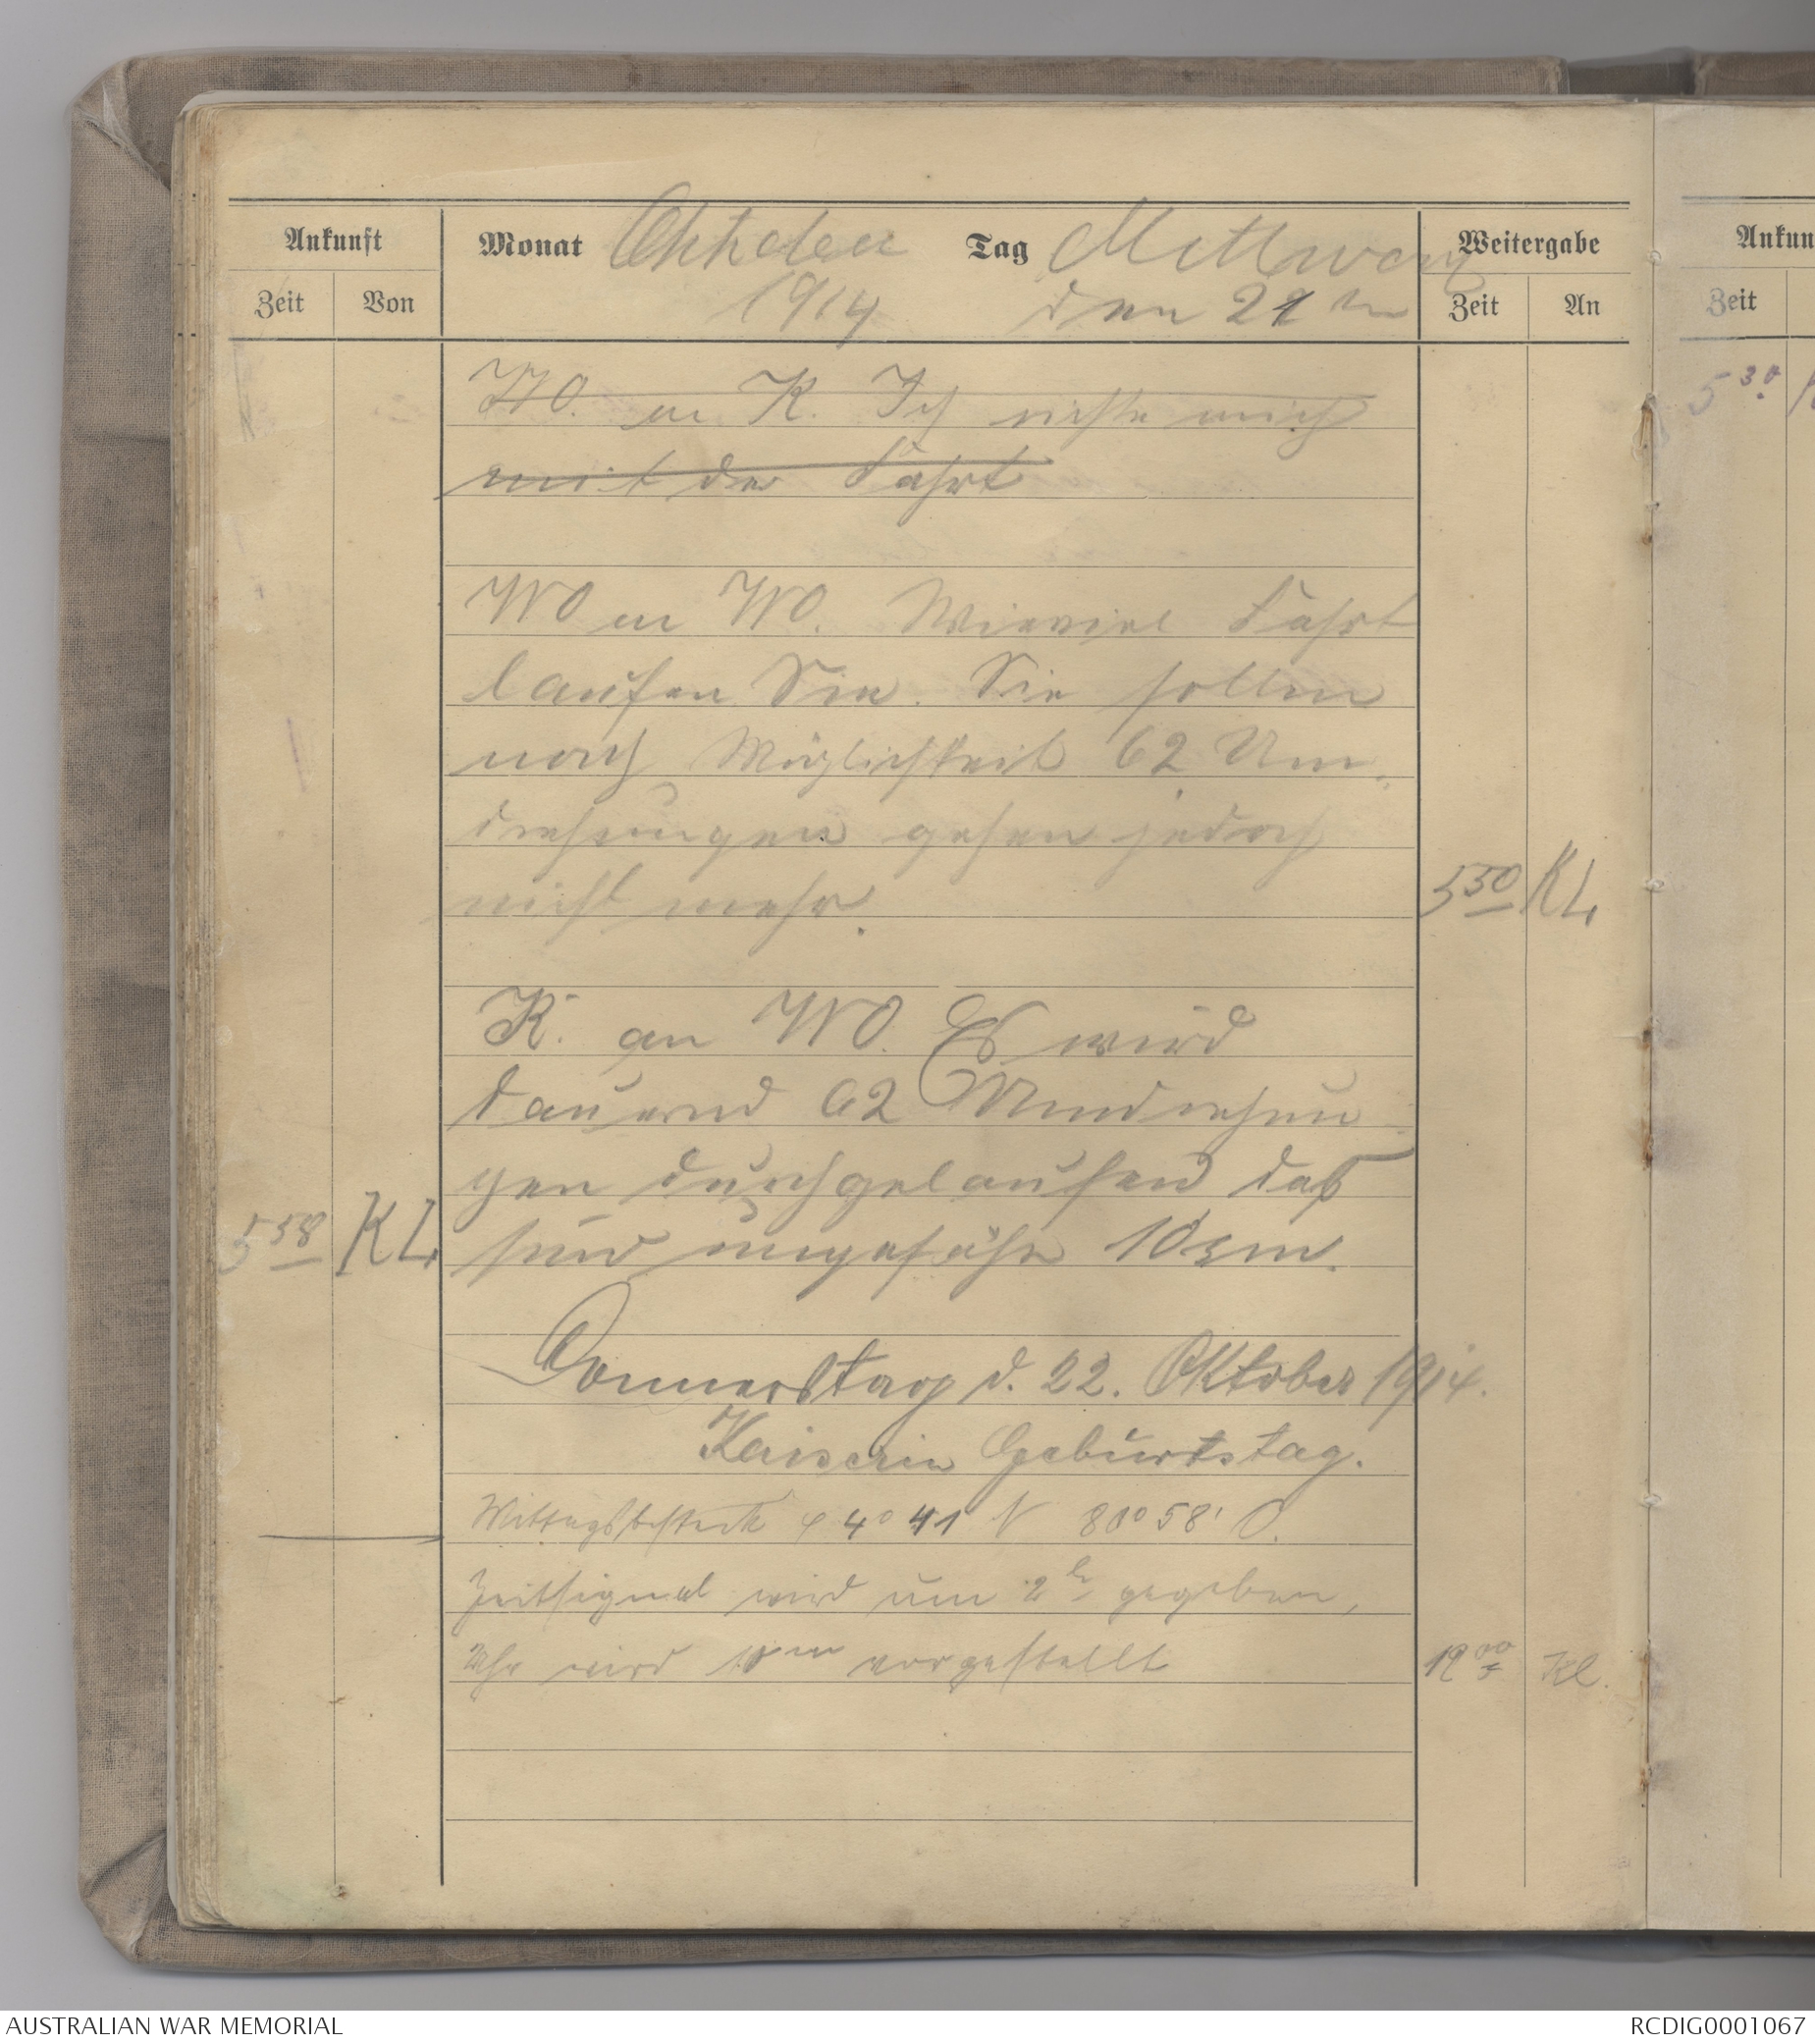 Ankunft Monat Oktober Tag Mittwoch Weitergabe
Zeit Von 1914 den 21ten Zeit An
WO. an K. Ich richte mich
mit der Fahrt
WO an WO. Wieviel Fahrt
laufen Sie. Sie sollen
nach Möglichkeit 62 Um-
drehungen gehen jedoch
nicht mehr. 5 50 KL.
K. an WO. Es wird
dauernd 62 Umdrehun
gen durchgelaufen das
5 58 KL. sind ungefähr 10 sm.
Donnerstag d. 22. Oktober 1914.
Kaiserin Geburtstag.
Mittagsbesteck φ 4° 41 N 80° 58' O.
Zeitsignal wird um 2h gegeben,
Uhr wird 10m vorgestellt Kl.
Ankun
Zeit
5 30
AUSTRALIAN WAR MEMORIAL RCDIG0001067